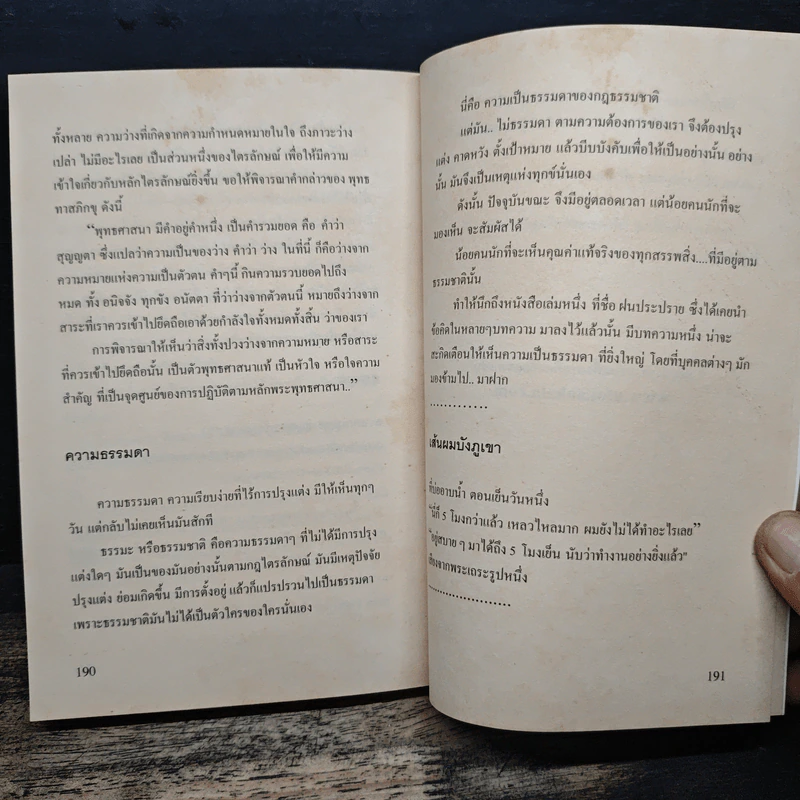 ทั้งหลาย ความว่างที่เกิดจากความกำหนดหมายในใจ ถึงภาวะว่าง
เปล่า ไม่มีอะไรเลย เป็นส่วนหนึ่งของไตรลักษณ์ เพื่อให้มีความ
เข้าใจเกี่ยวกับหลักไตรลักษณ์ยิ่งขึ้น ขอให้พิจารณาคำกล่าวของ พุทธ
ทาสภิกขุ ดังนี้
“พุทธศาสนา มีคำอยู่คำหนึ่ง เป็นคำรวมยอด คือ คำว่า
สุญญตา ซึ่งแปลว่าความเป็นของว่าง คำว่า ว่าง ในที่นี้ ก็คือว่างจาก
ความหมายแห่งความเป็นตัวตน คำๆนี้ กินความรวบยอดไปถึง
หมด ทั้ง อนิจจัง ทุกขัง อนัตตา ที่ว่าว่างจากตัวตนนี้ หมายถึงว่างจาก
สาระที่เราควรเข้าไปยึดถือเอาด้วยกำลังใจทั้งหมดทั้งสิ้น ว่าของเรา
การพิจารณาให้เห็นว่าสิ่งทั้งปวงว่างจากความหมาย หรือสาระ
ที่ควรเข้าไปยึดถือนั้น เป็นตัวพุทธศาสนาแท้ เป็นหัวใจ หรือใจความ
สำคัญ ที่เป็นจุดศูนย์ของการปฏิบัติตามหลักพระพุทธศาสนา..”
ความธรรมดา
ความธรรมดา ความเรียบง่ายที่ไร้การปรุงแต่ง มีให้เห็นทุกๆ
วัน แต่กลับไม่เคยเห็นมันสักที
ธรรมะ หรือธรรมชาติ คือความธรรมดาๆ ที่ไม่ได้มีการปรุง
แต่งใดๆ มันเป็นของมันอย่างนั้นตามกฎไตรลักษณ์ มันมีเหตุปัจจัย
ปรุงแต่ง ย่อมเกิดขึ้น มีการตั้งอยู่ แล้วก็แปรปรวนไปเป็นธรรมดา
เพราะธรรมชาติมันไม่ได้เป็นตัวใครของใครนั่นเอง
190
นี่คือ ความเป็นธรรมดาของกฎธรรมชาติ
แต่มัน.. ไม่ธรรมดา ตามความต้องการของเรา จึงต้องปรุง
แต่ง คาดหวัง ตั้งเป้าหมาย แล้วบีบบังคับเพื่อให้เป็นอย่างนั้น อย่าง
นั้น มันจึงเป็นเหตุแห่งทุกข์นั่นเอง
ดังนั้น ปัจจุบันขณะ จึงมีอยู่ตลอดเวลา แต่น้อยคนนักที่จะ
มองเห็น จะสัมผัสได้
น้อยคนนักที่จะเห็นคุณค่าแท้จริงของทุกสรรพสิ่ง....ที่มีอยู่ตาม
ธรรมชาตินั้น
ทำให้นึกถึงหนังสือเล่มหนึ่ง ที่ชื่อ ฝนประปราย ซึ่งได้เคยนำ
ข้อคิดในหลายๆบทความ มาลงไว้แล้วนั้น มีบทความหนึ่ง น่าจะ
สะกิดเตือนให้เห็นความเป็นธรรมดา ที่ยิ่งใหญ่ โดยที่บุคคลต่างๆ มัก
มองข้ามไป.. มาฝาก
.............
เส้นผมบังภูเขา
ที่บ่ออาบน้ำ ตอนเย็นวันหนึ่ง
“นี่ก็ 5 โมงกว่าแล้ว เหลวไหลมาก ผมยังไม่ได้ทำอะไรเลย”
“อยู่สบาย ๆ มาได้ถึง 5 โมงเย็น นับว่าทำงานอย่างยิ่งแล้ว”
เสียงจากพระเถระรูปหนึ่ง
......................
191